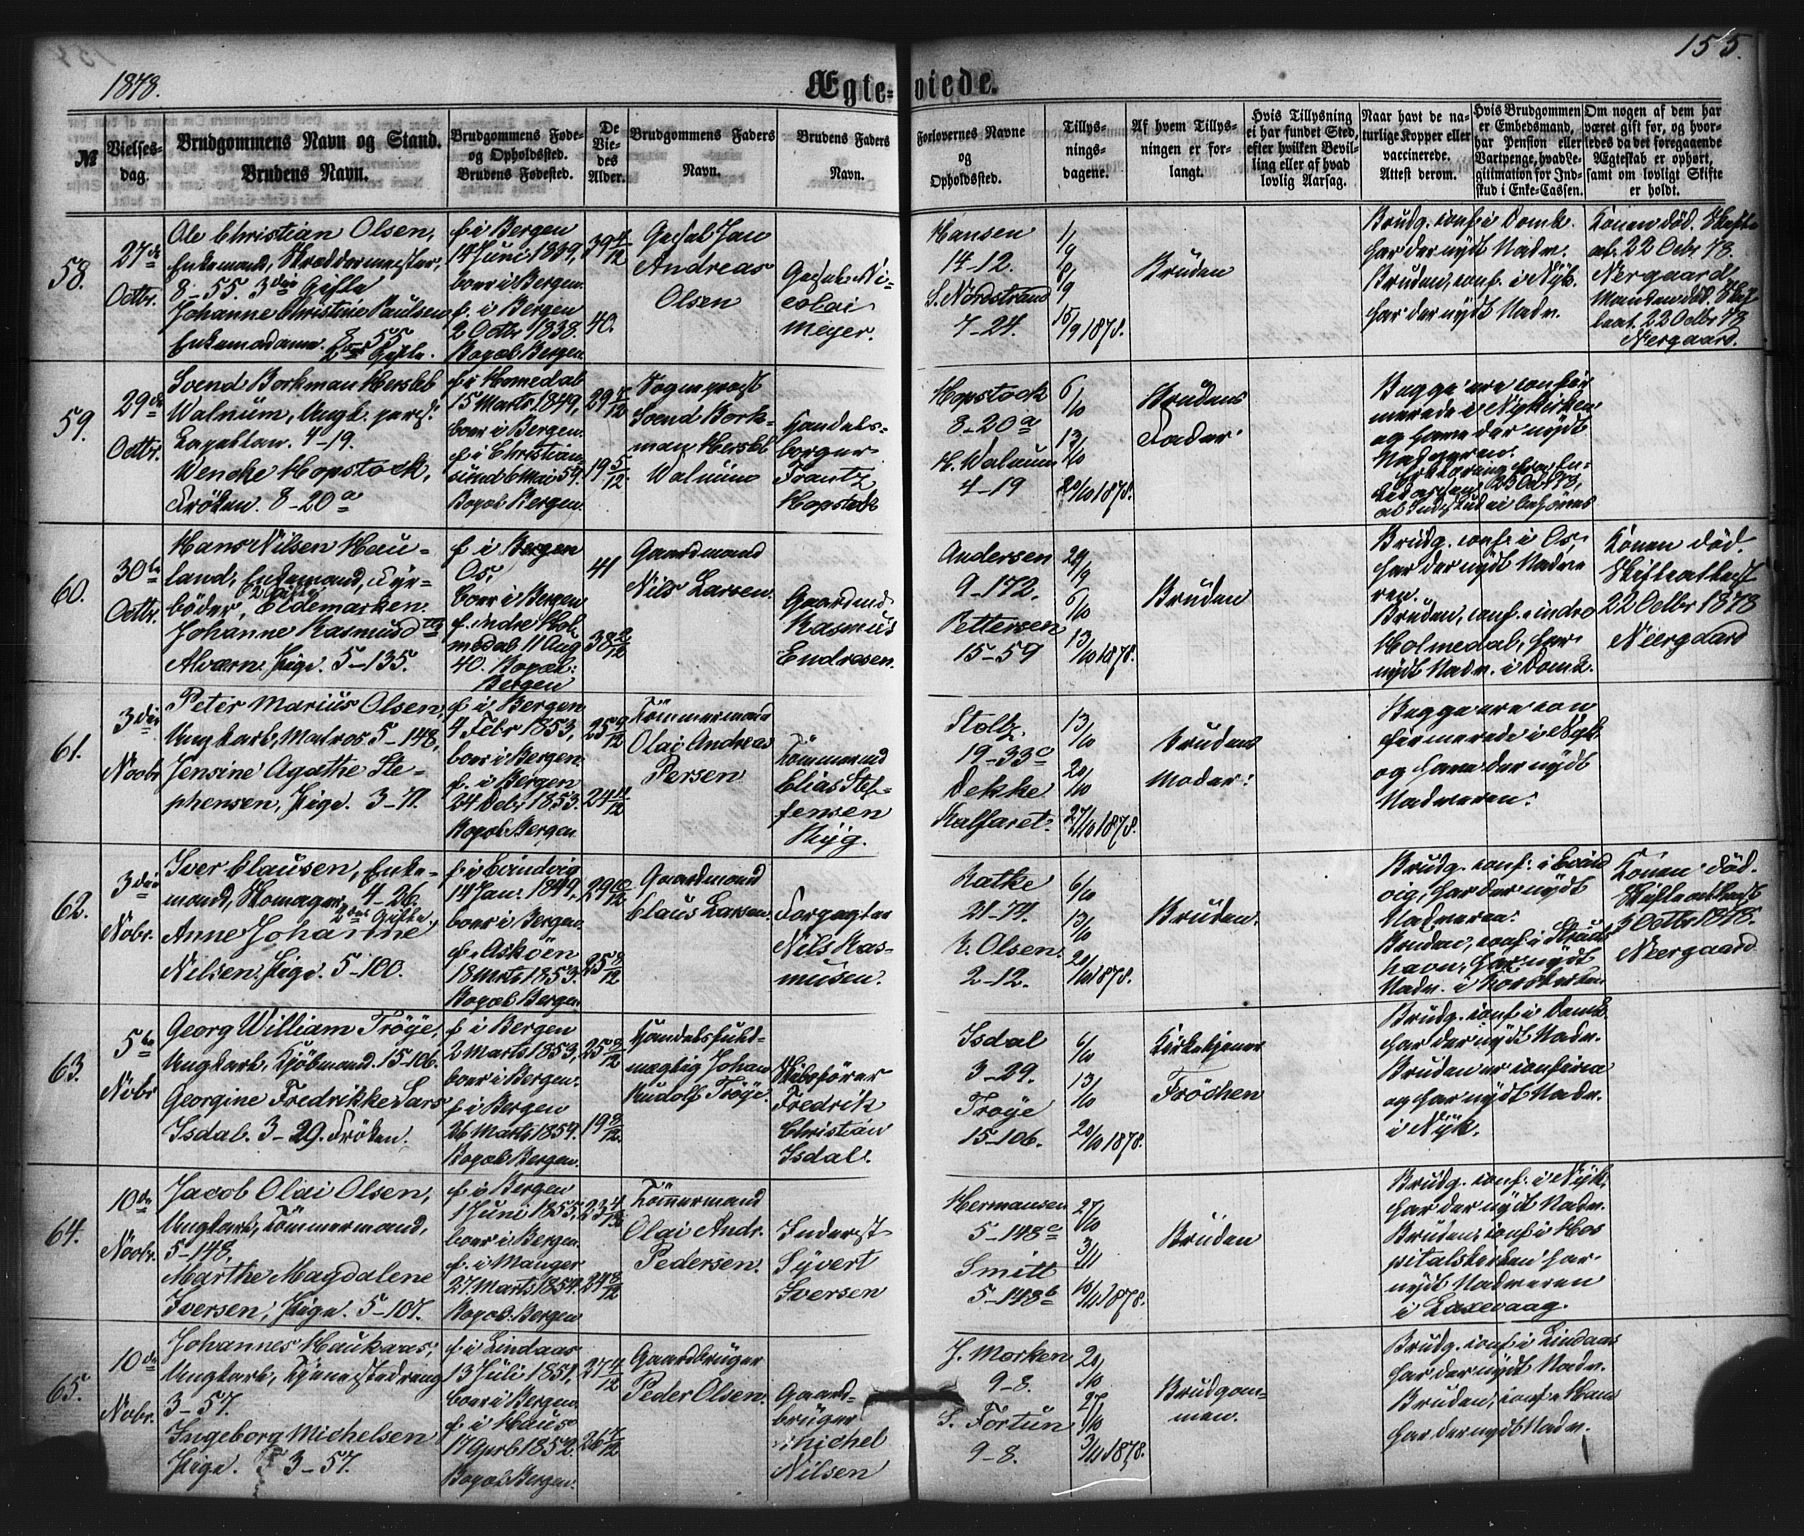 155.
1878.
Ægte-viede.
№
Vielses-
dag.
Brudgommens Navn og Stand.
Brudens Navn.
Brudgommens Føde-
og Opholdssted.
Brudens Fødested.
De
Vie-
des
Alder.
Brudgommens Faders
Navn.
Brudens Faders
Navn.
Forlovernes Navne
og
Opholdssted.
Tillys-
nings-
dagene.
Af hvem Tillys-
ningen er for-
langt.
Hvis Tillysning
ei har fundet Sted,
efter hvilken Bevil-
ling eller af hvad
lovlig Aarsag.
Naar havt de na-
turlige Kopper eller
vaccinerede.
Attest derom.
Hvis Brudgommen
er Embedsmand,
har Pension eller
Vartpenge, hvad Le-
gitimation for Ind-
skud i Enke-Cassen.
Om nogen af dem har
været gift før, og hvor-
ledes da det foregaaende
Ægteskab er ophørt,
samt om lovligt Skifte
er holdt.
58.
27de
Octbr.
Ole Christian Olsen,
Enkemand, Skræddermester,
8-55. 3die Gifte
Johanne Christine Paulsen
Enkemadame. 8-55
2det Gifte.
f. i Bergen
boer i Bergen.
f. i Bergen
2 Octbr 1838.
Bopæl Bergen
39 4/12
40.
Jan
Andreas
Olsen
Ni-
colai
Meyer.
Hansen
14-12.
S. Nordstrand
7-24.
1/9
8/9
15/9 1878.
Bruden
Brudg. conf. i Domk.
har der nydt Nadv.
Bruden, conf. i Nyk.
har der nydt Nadv.
Konen død. Skifte
at. 22 Octbr 78.
Neergaard
Manden død. Skif
teat. 22 Octbr 78
Neergaard.
59.
29de
Octbr.
Svend Borkman Hersleb
Walnum, Ungk. pers.
Capellan. 4-19.
Wencke Hopstock,
Frøken. 8-20a
f. i Homedal
15 Marts 1849,
boer i Bergen.
f. i Christian-
sund 6 Mai 59.
Bopæl Bergen.
29 7/12
19 5/12
Sogneprest
Svend Bork-
man Hersleb
Walnum
Handels-
borger
Frantz
Hopstock
Hopstock
8-20a
H. Walnum
4-19
6/10
13/10
20/10 1878.
Brudens
Fader.
Begge ere confir
merede i Nykirken
og have der nydt
Nadveren.
60.
30te
Octbr.
Hans Nilsen Hau-
land, Enkemand, Fyr-
bøder, Eldemarken.
2 Gifte
Johanne Rasmusd.
Alværn. Pige. 5-135.
f. i Bergen
Os,
boer i Bergen
f. Indre Hol-
medal 11 Aug
40. Bopæl:
Bergen
41
38 2/12
Gaardmand
Nils Larsen.
Gaardmd
Rasmus
Endresen.
Andersen
9-172.
Pettersen
15-59
29/9
6/10
13/10 1878.
Bruden
Brudg. conf. i Os,
har der nydt Nadve
ren.
Bruden, conf. indre
Holmedal, har
nydt Nadv. i Domk.
Konen død.
Skifteattest
22 Octbr 1878
Neergaard
61.
3die
Novbr
Peter Marius Olsen,
Ungkarl, Matros. 5-148,
Jensine Agathe Ste-
phensen, Pige. 3-71.
f. i Bergen
4 Febr 1853,
boer i Bergen.
f. i Bergen
24 Decbr 1853.
Bopæl Bergen.
25 9/12
24 11/12
Tømmermand
Olai Andreas
Persen
Tømmermd
Elias Stef-
fensen
Ryg.
Stoltz
19-33c
Dekke
Kalfaret.
13/10
20/10
27/10 1878.
Brudens
Moder.
Begge ere con
firmerede i Nyk.
og have der nydt
Nadveren.
62.
3die
Nvbr.
Iver Clausen, Enke-
mand, Skomager, 4-26.
2det Gifte.
Anne Johanne
Nilsen. Pige. 5-100.
f. i Evindvig
14 Jan. 1849,
boer i Bergen.
f. Askøen
18 Marts 1853.
Bopæl Bergen.
29 10/12
25 8/12
Gaardmand
Claus Larsen.
Forpagter
Nils Ras-
musen.
Ratke
21-74.
K. Olsen
2-12.
6/10
13/10
20/10 1878.
Bruden.
Brudg. conf. i Evind
vig, har der nydt
Nadveren.
Bruden, conf. i Struds
havn, har nydt
Nadv. i Korskirken
Konen død.
Skifteattest
5 Octbr 1878.
Neergaard
63.
5te
Nvbr
Georg William Trøye,
Ungkarl, Kjøbmand. 15-106.
Georgine Fredrikke Lars
Isdal. 3-29. Frøken.
f. i Bergen
2 Marts 1853,
boer i Bergen.
f. i Bergen
26 Marts 1859.
Bopæl Bergen.
25 8/12
19 8/12
Handelsfuld-
mægtig Johan
Rudolf Trøye.
Skibsfører
Fredrik
Christian
Isdal.
Isdal
3-29.
Trøye
15-106.
6/10
13/10
20/10 1878.
Kirketjener
Frøchen
Brudg. conf. i Domk.
har der nydt Nadv.
Bruden er confirm
og har nydt Nadv.
i Nyk.
64.
10de
Novbr.
Jacob Olai Olsen,
Ungkarl, Tømmermand,
5-148.
Marthe Magdalene
Iversen, Pige. 5-107.
f. i Bergen
1 Juni 1855,
boer i Bergen.
f. i Manger
27 Marts 1854.
Bopæl Bergen
23 4/12
24 8/12
Tømmermand
Olai Andr.
Pedersen.
Inderst
Syvert
Iversen
Hermansen
5-148c
Smitt
5-148b
27/10
3/11
10/11 1878.
Bruden
Brudg. conf. i Nyk.
har der nydt Nadv.
Bruden, conf. i Hos
pitalskirken har
nydt Nadveren
i Laxevaag.
65.
10de
Nvbr.
Johannes Haukaas,
Ungkarl, Tjenestedreng
3-57.
Ingeborg Michelsen
Pige. 3-57.
f. i Lindaas
13 Juli 1851,
boer i Bergen.
f. i Haus
17 April 1852.
Bopæl Bergen.
27 4/12
26 7/12
Gaardbruger
Peder Olsen.
Gaard-
bruger
Michel
Nilsen
J. Morken
9-8.
S. Fortun
9-8.
20/10
27/10
3/11 1878.
Brudgom-
men.
Brudg. conf. i Lindaas
har der nydt Nadv.
Bruden, conf. i Ham
har der nydt Nadv.